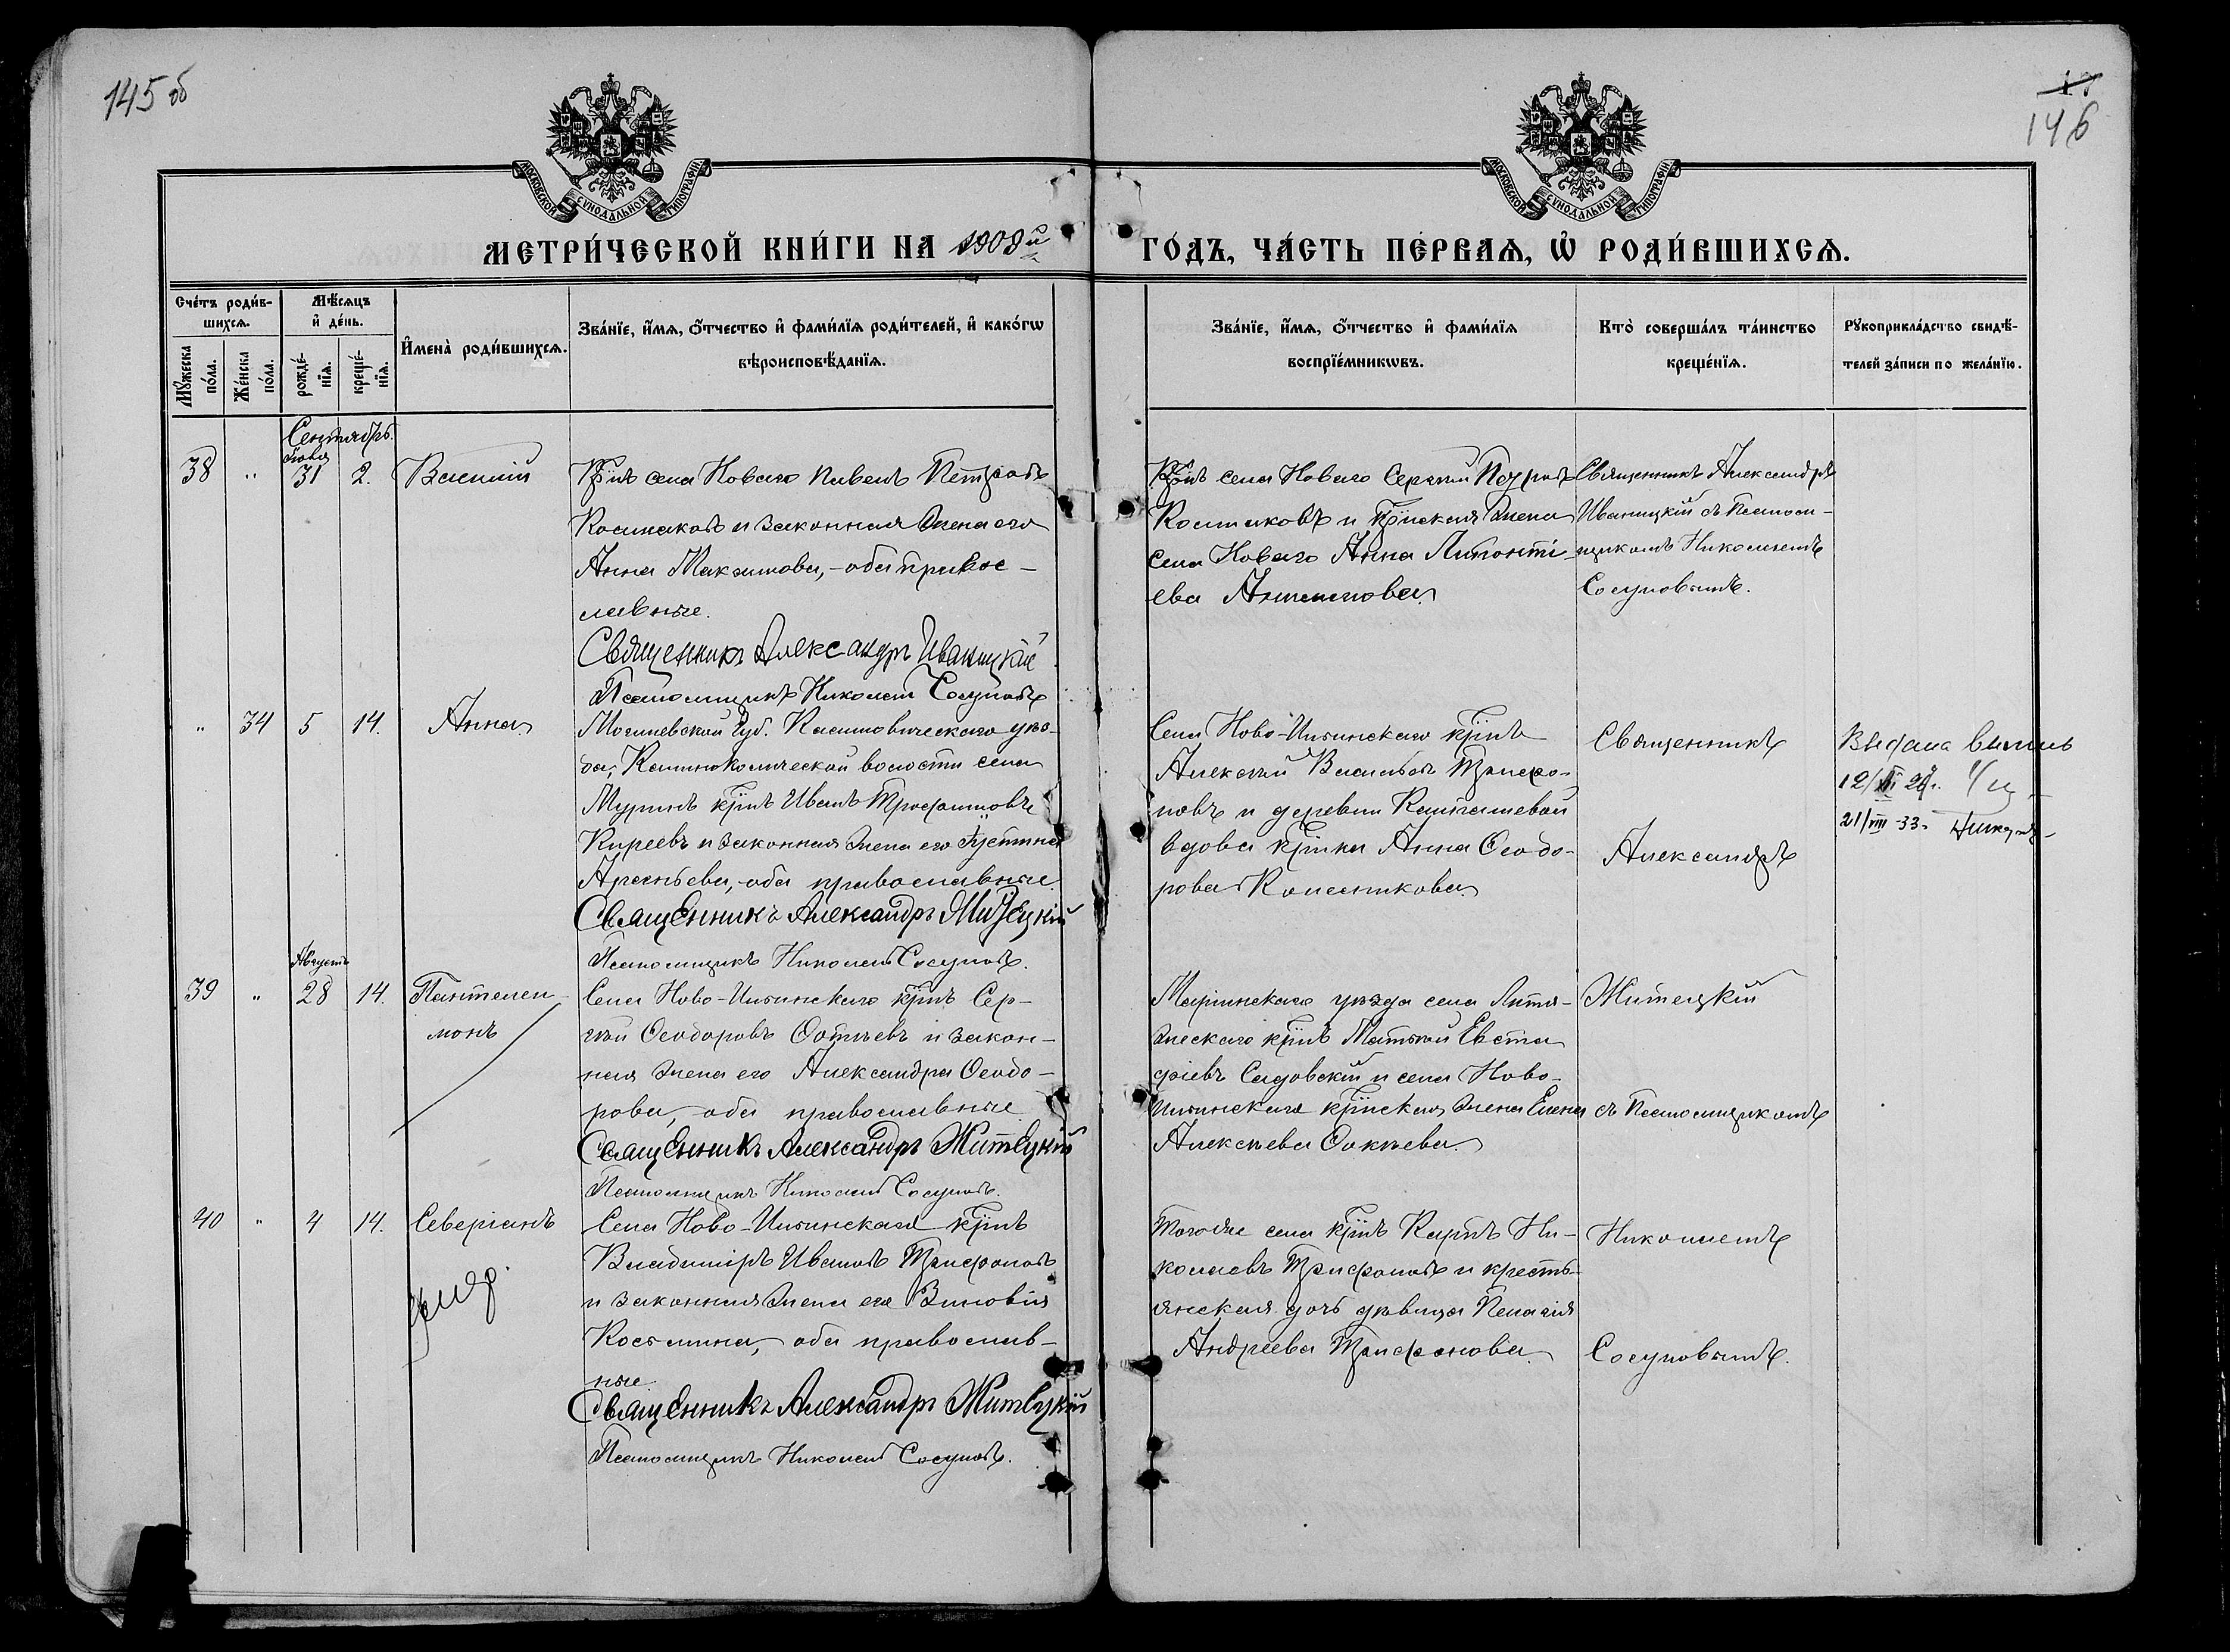 145 об
146
МОСКОВСКОЙ СУНОДАЛЬНОЙ ТИПОГРАФІИ
МОСКОВСКОЙ СУНОДАЛЬНОЙ ТИПОГРАФІИ
МЕТРИ́ЧЕСКОЙ КНИ́ГИ НА 1909й ГО́ДЪ, ЧА́СТЬ ПЕ́РВАѦ, Ѡ҆ РОДИ́ВШИХСѦ.
Сче́тъ роди́в-
шихсѧ.
Мꙋ́жеска по́ла.
Же́нска по́ла.
Мѣ́сѧцъ
и҆ де́нь.
рожде́-
нїѧ.
креще́-
нїѧ.
И҆мена̀ роди́вшихсѧ.
Зва́нїе, и҆́мѧ, ѻ҆́тчество и҆ фами́лїѧ роди́телей, и҆ како́гѡ
вѣроисповѣ́данїѧ.
Зва́нїе, и҆́мѧ, ѻ҆́тчество и҆ фами́лїѧ
воспрїе́мникѡвъ.
Кто̀ соверша́лъ та́инство
креще́нїѧ.
Рꙋкоприкла́дство свидѣ́-
телей за́писи по жела́нїю.
Сентябрь.
38 " 31 2. Василій
Кр̃нъ села Новаго Павелъ Петровъ
Костаковъ и законная жена его
Анна Максимова, - оба правос-
лавные.
Священникъ Александръ Иваницкій
Псаломщикъ Николай Сосуновъ
Кр̃нъ села Новаго Сергѣй Петровъ
Костаковъ и кр̃нская жена
села Новаго Анна
ева
Священникъ Александръ
Иваницкій съ Псалом-
щикомъ Николаемъ
Сосуновымъ.
" 34 5 14. Анна
Могилевской губ. Климовическаго уѣз-
да, волости села
кр̃нъ Иванъ Трофимовъ
Киреевъ и законная жена его Іустина
Арсеньева, - оба православные
Священникъ Александръ Житецкій
Псаломщикъ Николай Сосуновъ.
Села Ново-Ильинскаго кр̃нъ
Алексѣй Васильевъ Трифо-
новъ и деревни
вдова кр̃нка Анна Ѳеодо-
рова Колесникова
Священникъ
Александръ
Выдана выпись
12/ 29г.
21/VIII-33г.
Августъ
39 " 28 14. Пантелеи-
монъ
Села Ново-Ильинскаго кр̃нъ Сер-
гѣй Ѳеодоровъ Ѳокѣевъ и закон-
ная жена его Александра Ѳеодо-
рова, - оба православные
Священникъ Александръ Житецкій
Псаломщикъ Николай Сосуновъ.
Маріинскаго уѣзда села
кр̃нъ Матвѣй Евста-
фіевъ Садовскій и села Ново-
Ильинскаго кр̃нская жена Елена
Алексѣева Ѳокѣева.
Житецкій
съ Псаломщикомъ
40 " 4 14. Северіанъ
Села Ново-Ильинскаго кр̃нъ
Владиміръ Ивановъ Трифоновъ
и законная жена его Зиновія
Косьмина, оба православ-
ные
Священникъ Александръ Житецкій
Псаломщикъ Николай Сосуновъ.
Тогоже села кр̃нъ Карпъ Ни-
колаевъ Трифоновъ и кресть-
янская дочь дѣвица Пелагія
Андреева Трифонова
Николаемъ
Сосуновымъ.
умр.